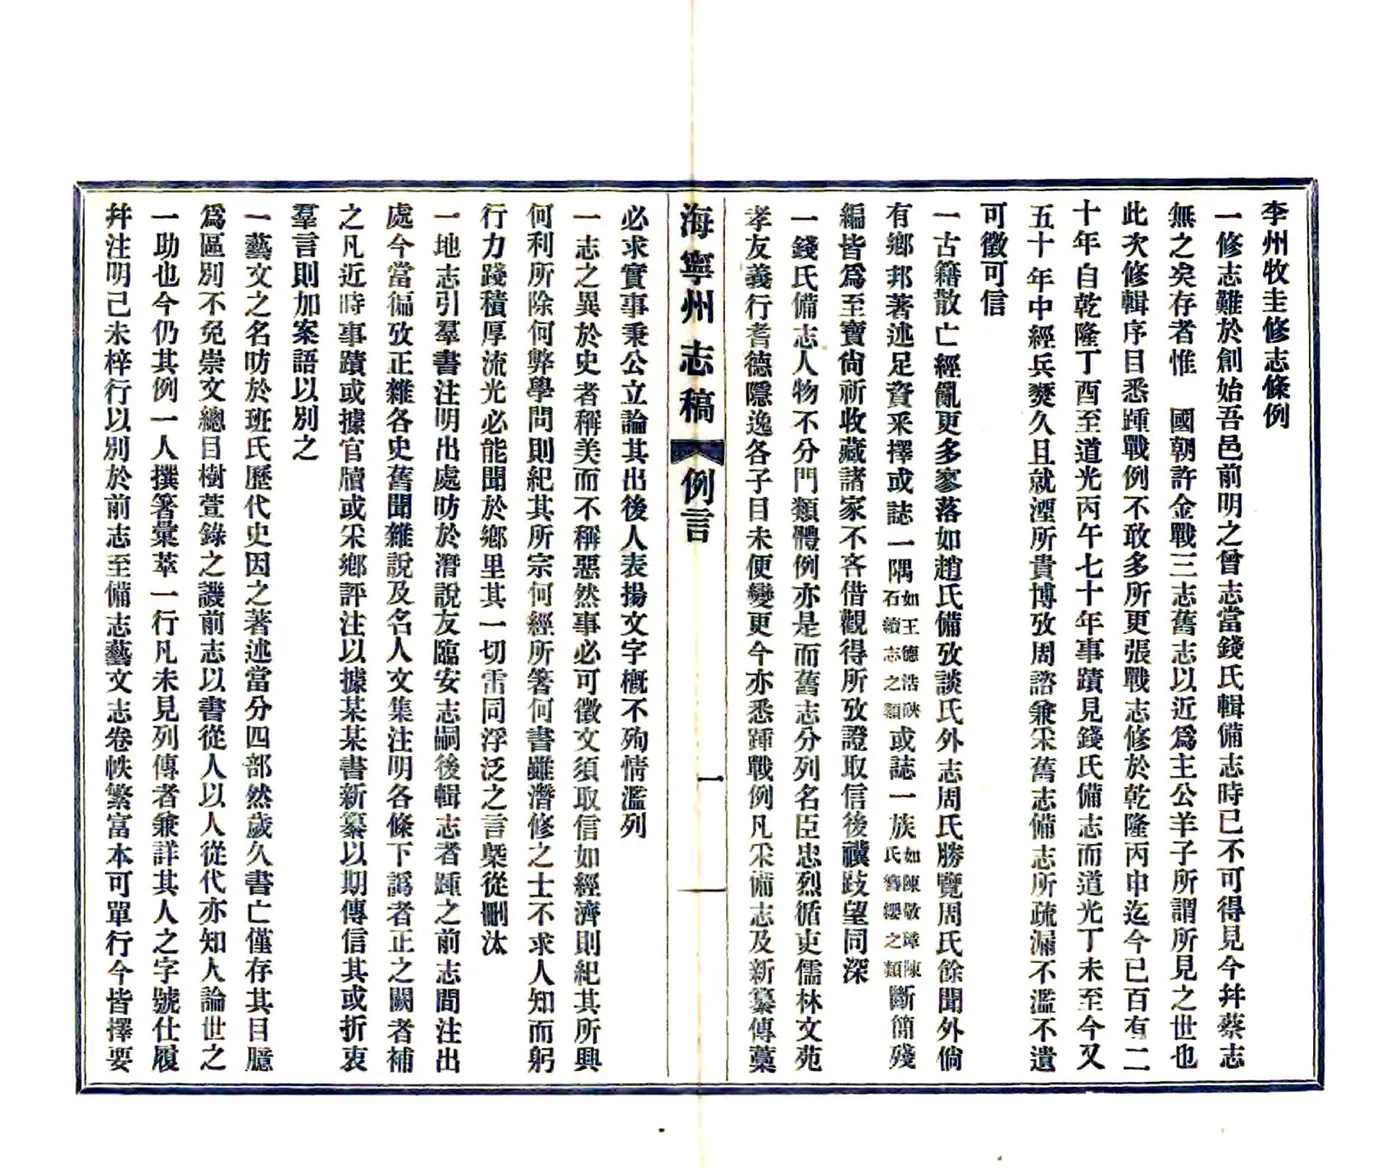 李州牧圭修志條例
一修志難於創始吾邑前明之曾志當錢氏輯備志時已不可得見今幷蔡志
無之矣存者惟　國朝許金戰三志舊志以近爲主公羊子所謂所見之世也
此次修輯序目悉踵戰例不敢多所更張戰志修於乾隆丙申迄今已百有二
十年自乾隆丁酉至道光丙午七十年事蹟見錢氏備志而道光丁未至今又
五十年中經兵燹久且就湮所貴博攷周諮兼采舊志備志所疏漏不濫不遺
可徵可信
一古籍散亡經亂更多寥落如趙氏備攷談氏外志周氏勝覽周氏餘聞外倘
有鄉邦著述足資采擇或誌一隅如王德浩硤石續志之類或誌一族如陳敬璋陳氏簪纓之類斷簡殘
編皆爲至寶尙祈收藏諸家不吝借觀得所攷證取信後禩跂望同深
一錢氏備志人物不分門類體例亦是而舊志分列名臣忠烈循吏儒林文苑
孝友義行耆德隱逸各子目未便變更今亦悉踵戰例凡采備志及新纂傳藁
海寧州志稿　例言　一
必求實事秉公立論其出後人表揚文字槪不殉情濫列
一志之異於史者稱美而不稱惡然事必可徵文須取信如經濟則紀其所興
何利所除何弊學問則紀其所宗何經所箸何書雖潛修之士不求人知而躬
行力踐積厚流光必能聞於鄉里其一切雷同浮泛之言槩從刪汰
一地志引羣書注明出處昉於潛說友臨安志嗣後輯志者踵之前志間注出
處今當徧攷正雜各史舊聞雜說及名人文集注明各條下譌者正之闕者補
之凡近時事蹟或據官牘或采鄉評注以據某某書新纂以期傳信其或折衷
羣言則加案語以別之
一藝文之名昉於班氏歷代史因之著述當分四部然歲久書亡僅存其目臆
爲區別不免崇文總目樹萱錄之譏前志以書從人以人從代亦知人論世之
一助也今仍其例一人撰箸彙萃一行凡未見列傳者兼詳其人之字號仕履
幷注明已未梓行以別於前志至備志藝文志卷帙繁富本可單行今皆擇要